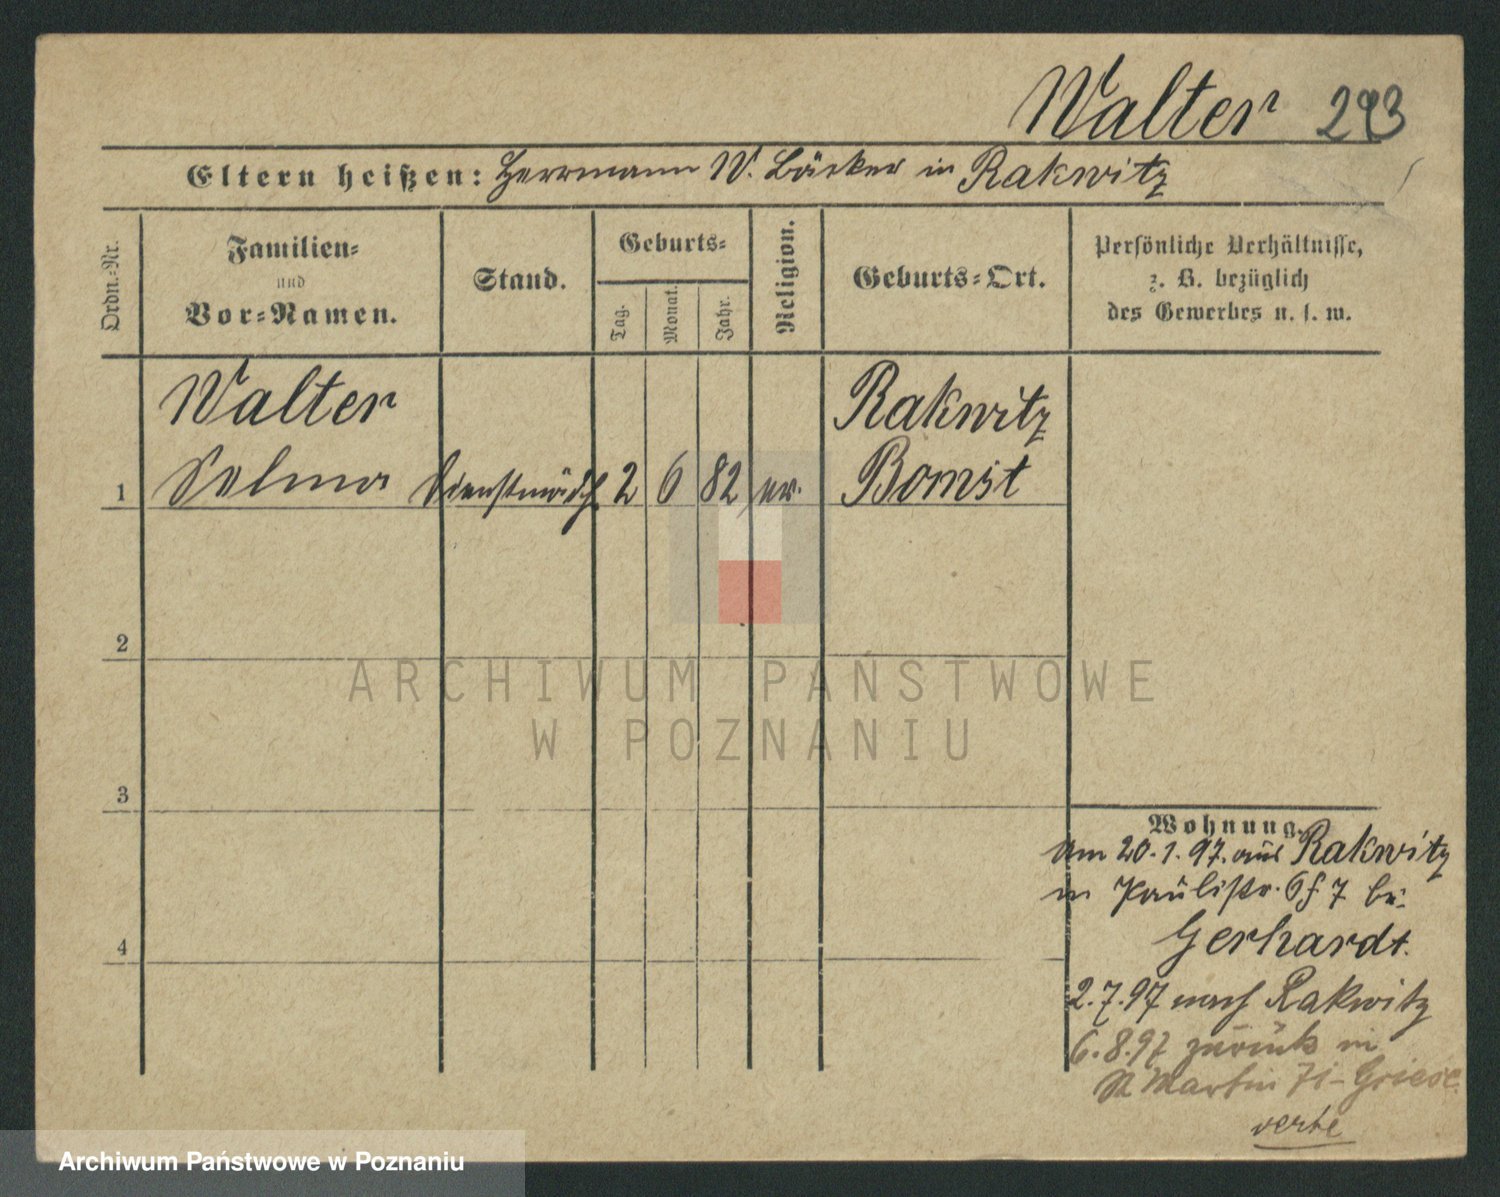 Walter 293
Eltern heißen: Herrmann W. Bäcker in Rakwitz
Ordn.-Nr.
Familien-
und
Vor-Namen.
Stand.
Geburts-
Tag.
Monat.
Jahr.
Religion.
Geburts-Ort.
Persönliche Verhältnisse,
z. B. bezüglich
des Gewerbes u. s. w.
Walter Rakwitz
1 Selma Dienstmädch 2 6 82 ev. Bomst
2
3
4
ARCHIWUM PAŃSTWOWE
W POZNANIU
Wohnung.
Am 20.1.97. aus Rakwitz
in Paulistr. 6 7 bei
Gerhardt.
2.7.97 nach Rakwitz
6.8.97 zurück in
St Martin 71
verte
Archiwum Państwowe w Poznaniu